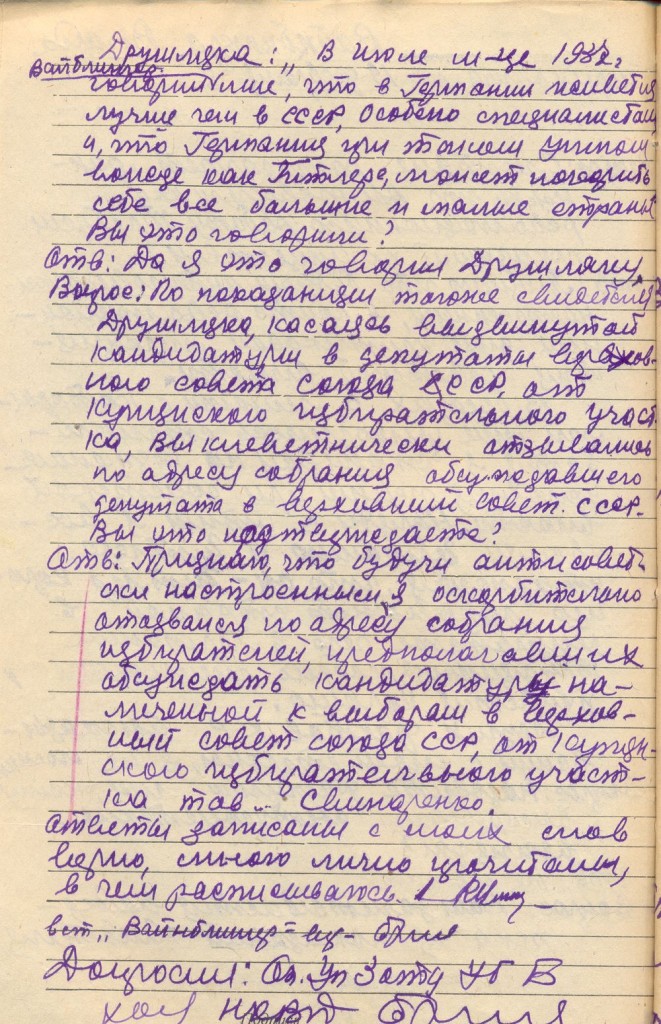 Друшляка: „В июле м-це 1937 г
Вайнблингер
говорил мне, что в Германии живется
лучше чем в СССР, особено специалистам
и, что Германия при таком
вожде как Гитлере, может покорить
себе все большие и малые страны
Вы это говорили?
Отв: Да я это говорил Друшляку,
Вопрос: По показании того же свидетеля
Друшляка, касаясь выдвинутой
кандидатуры в депутаты верхов-
ного совета союза СССР, от
избирательного участ-
ка, вы клеветнически отзывались
по адресу собрания обсуждавшего
депутата в верховный совет СССР.
Вы это подтверждаете?
Отв: Признаю, что будучи антисовет-
ски настроенным я оскорбительно
отозвался по адресу собрания
избирателей, предполагавших
обсуждать кандидатуры на-
меченной к выборам в верхов-
ный совет союза ССР, от
ского избирательного участ-
ка тов. Свинаренко.
Ответы записаны с моих слов
верно, мною лично прочитаны,
в чем расписываюсь
вст „Вайнблингер" =
Допросил: Оп. Уп 3 отд УГБ